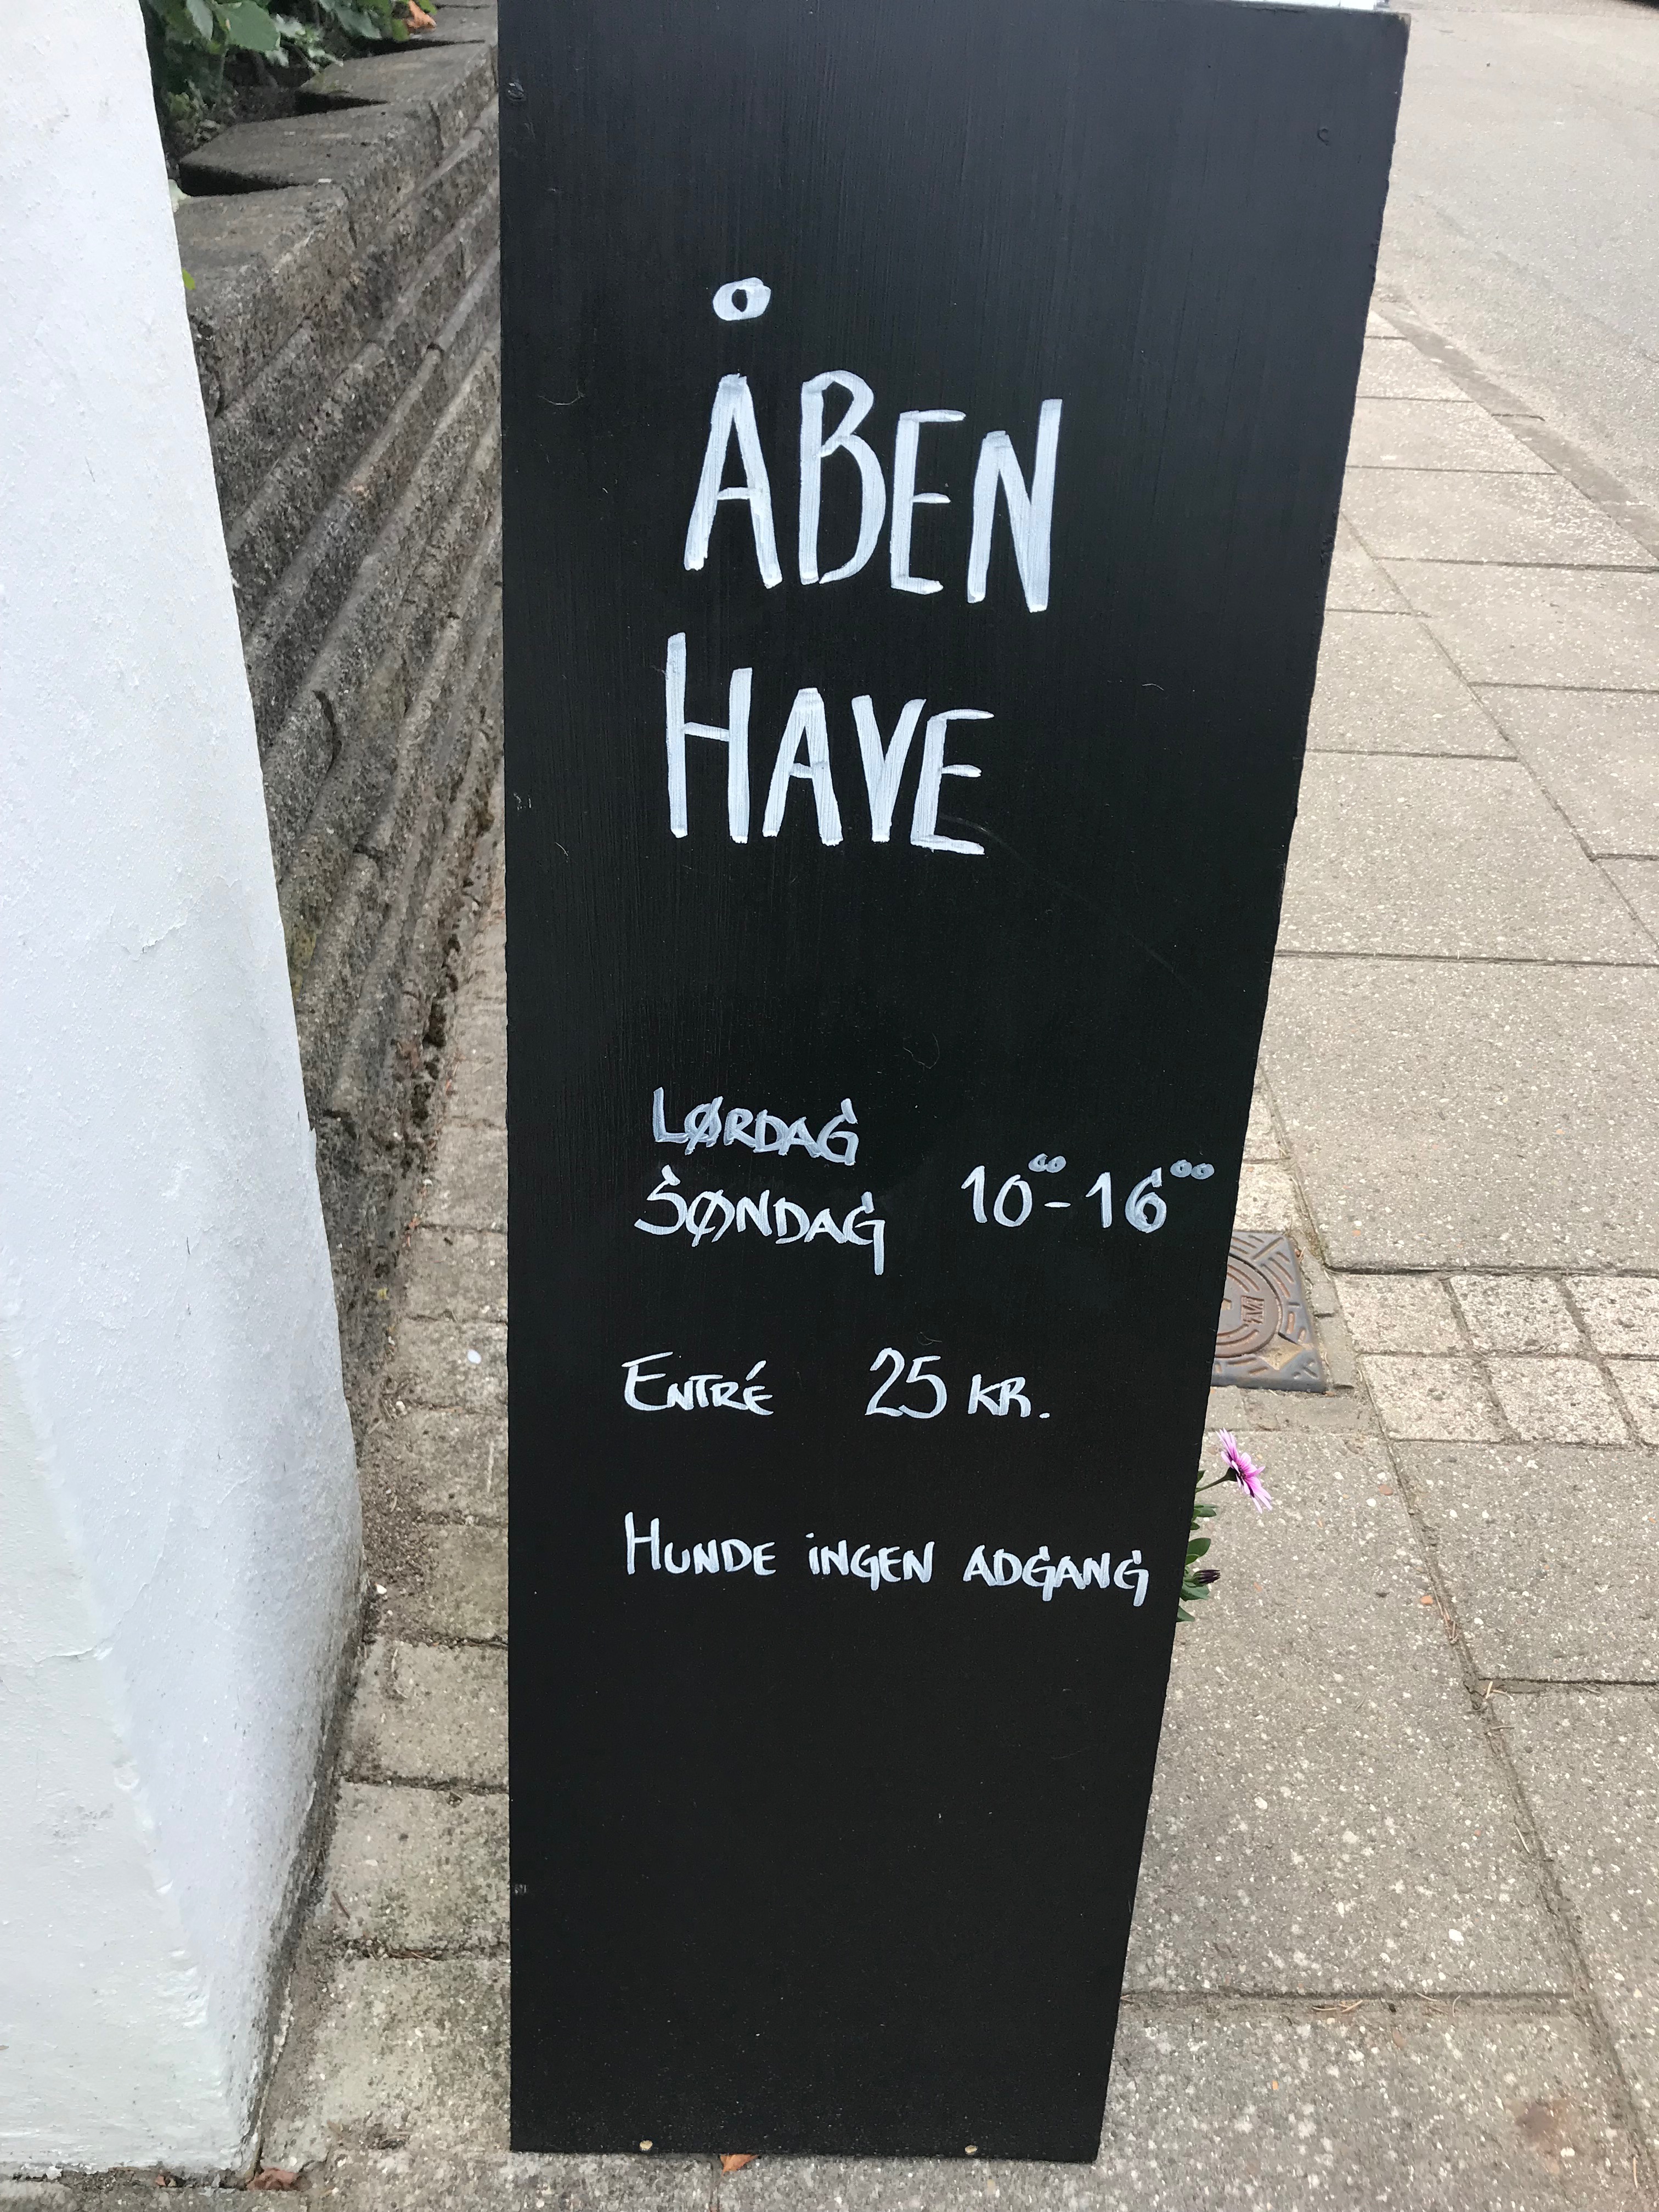 ÅBEN
HAVE
LØRDAG
SØNDAG 10⁰⁰-16⁰⁰
ENTRÉ 25 KR.
HUNDE INGEN ADGANG